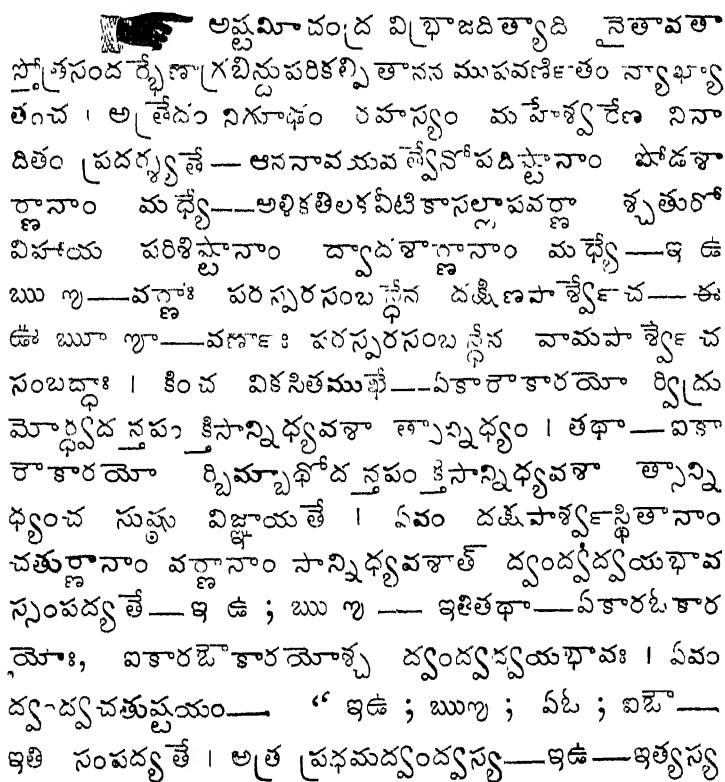 అష్టమీచంద్ర విభ్రాజదిత్యాది నైతావతా
స్తోత్రసందర్భేణాగ్రబిన్దుపరికల్పితానన ముపవర్ణితం వ్యాఖ్యా
తంచ । అత్రేదం నిగూఢం రహస్యం మహేశ్వరేణ నినా
దితం ప్రదర్శ్యతే — ఆననావయవత్వేనోపదిష్టానాం షోడశా
ర్ణానాం మధ్యే — అళికతిలకవీటికాసల్లాపవర్ణా శ్చతురో
విహాయ పరిశిష్టానాం ద్వాదశార్ణానాం మధ్యే — ఇ ఉ
ఋ ఌ — వర్ణాః పరస్పరసంబన్ధేన దక్షిణపార్శ్వేచ — ఈ
ఊ ౠ ౡ — వర్ణాః పరస్పరసంబన్ధేన వామపార్శ్వేచ
సంబద్ధాః । కించ వికసితముఖే — ఏకారౌకారయో ర్విద్రు
మోర్ధ్వదన్తపంక్తిసాన్నిధ్యవశా త్సాన్నిధ్యం । తథా — ఐకా
రౌకారయో ర్బిమ్బాథోదన్తపంక్తిసాన్నిధ్యవశా త్సాన్ని
ధ్యంచ సుష్ఠు విజ్ఞాయతే । ఏవం దక్షపార్శ్వస్థితానాం
చతుర్ణానాం వర్ణానాం సాన్నిధ్యవశాత్ ద్వంద్వద్వయభావ
స్సంపద్యతే — ఇ ఉ ; ఋ ఌ — ఇతితథా — ఏకారఓకార
యోః, ఐకారఔకారయోశ్చ ద్వంద్వద్వయభావః । ఏవం
ద్వంద్వచతుష్టయం — “ ఇఉ ; ఋఌ ; ఏఓ ; ఐఔ —
ఇతి సంపద్యతే । అత్ర ప్రథమద్వంద్వస్య — ఇఉ — ఇత్యస్య